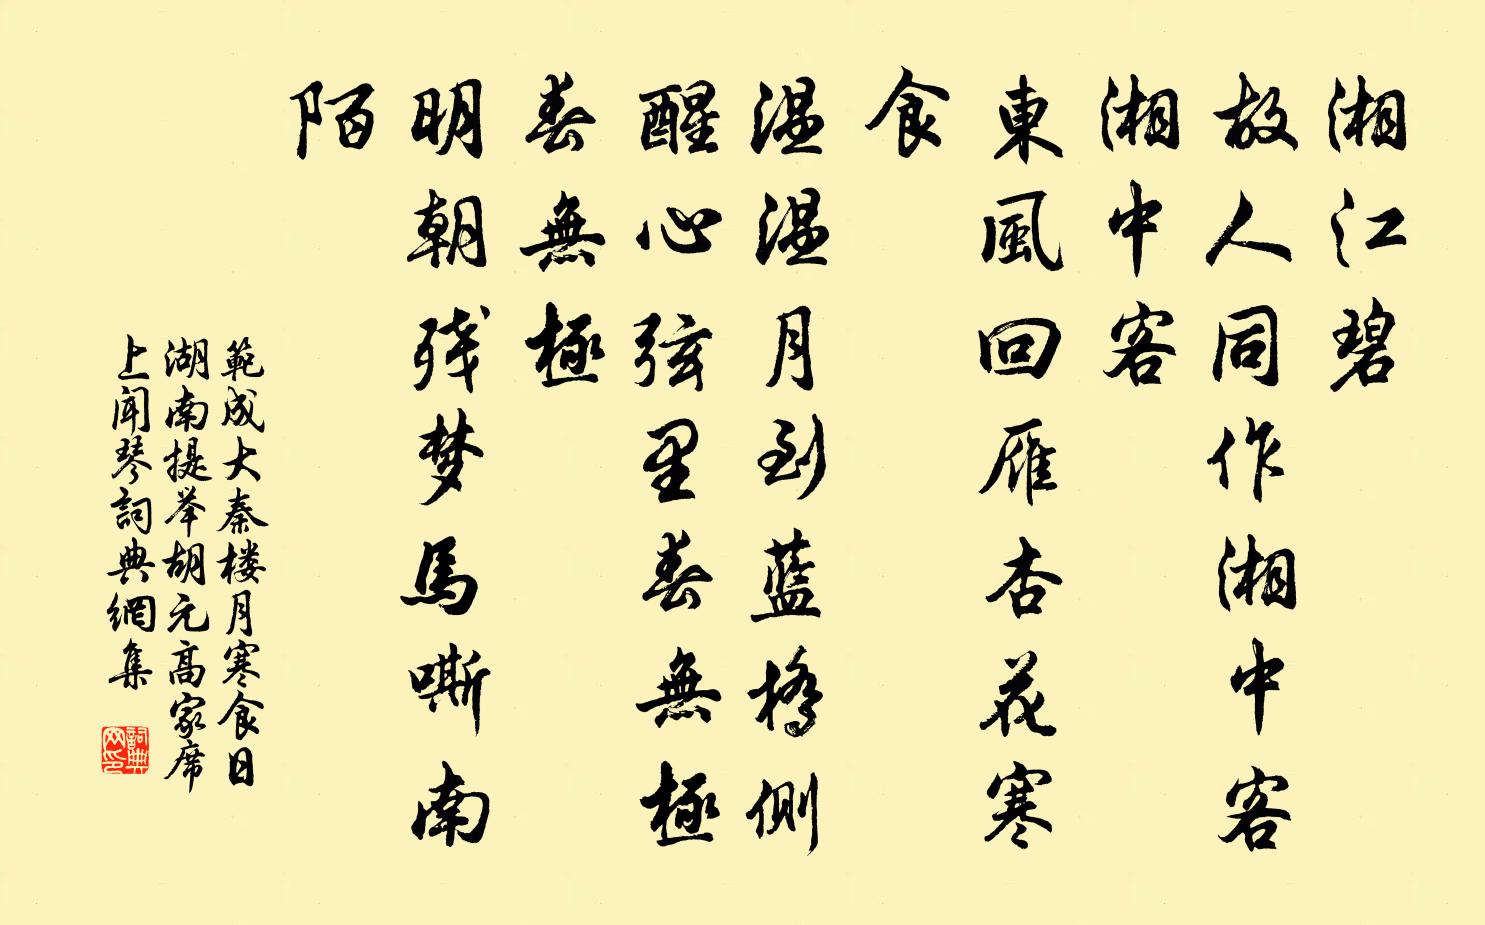 湘江碧
故人同作湘中客
湘中客
東風回雁杏花寒
食
温温月到藍橋側
醒心弦里春無極
春無極
明朝残梦馬嘶南
陌
範成大秦楼月寒食日
湖南提举胡元高家席
上闻琴詞典網集
詞典
网印